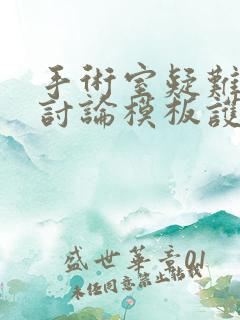 手術室疑難
討論模板護
盛世華章01
未经同意禁止転載